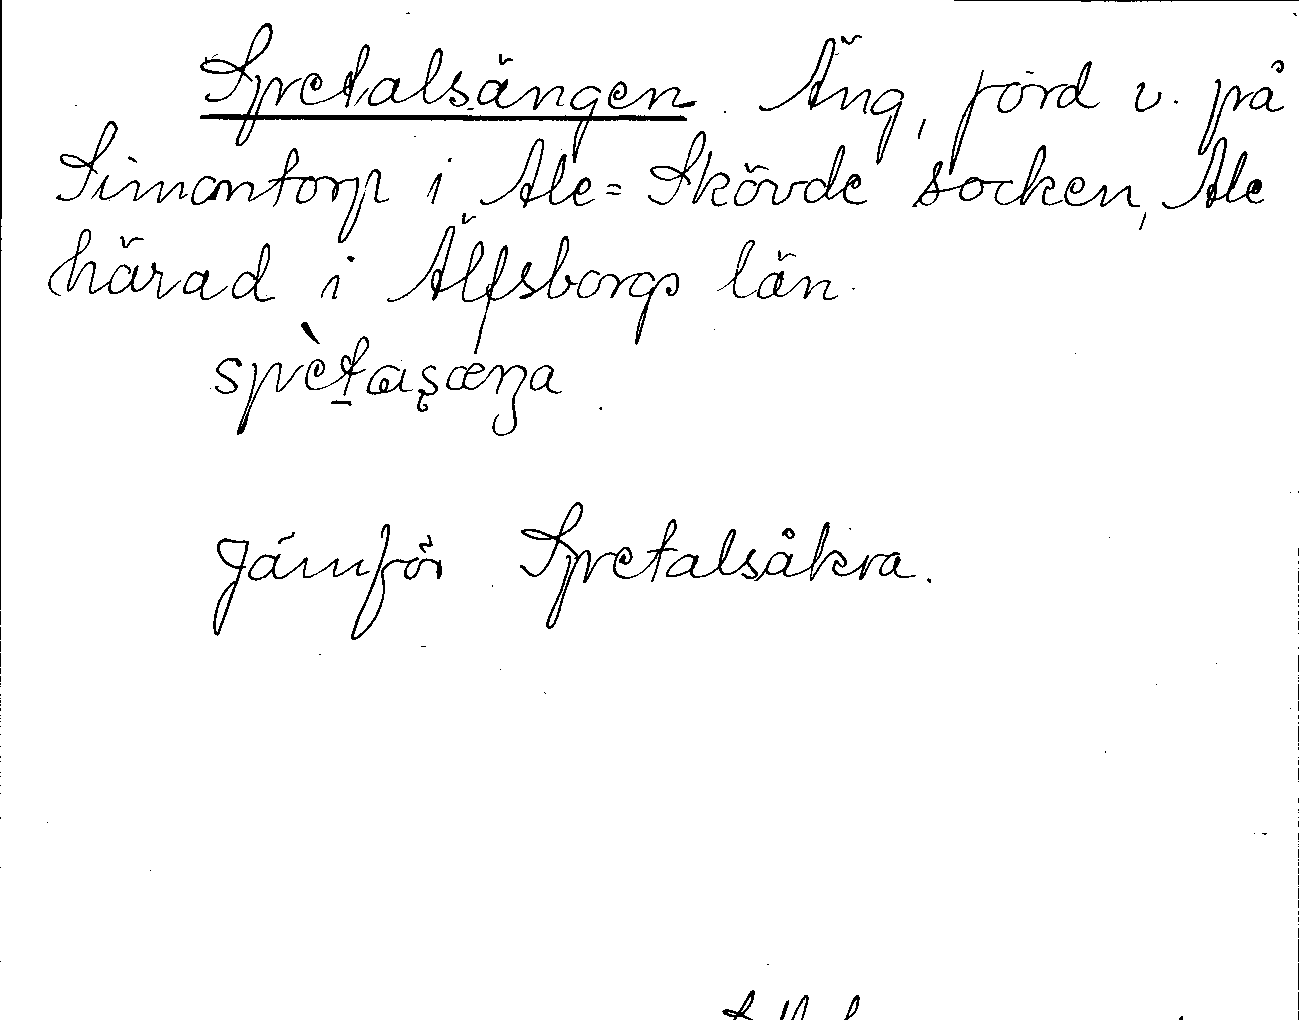 Spretalsängen. Äng, jord v. på
Simontorp i Ale-Skövde socken, Ale
härad i Älfsborgs län.
spètasæŋa
Jämför Spretalsåkra.